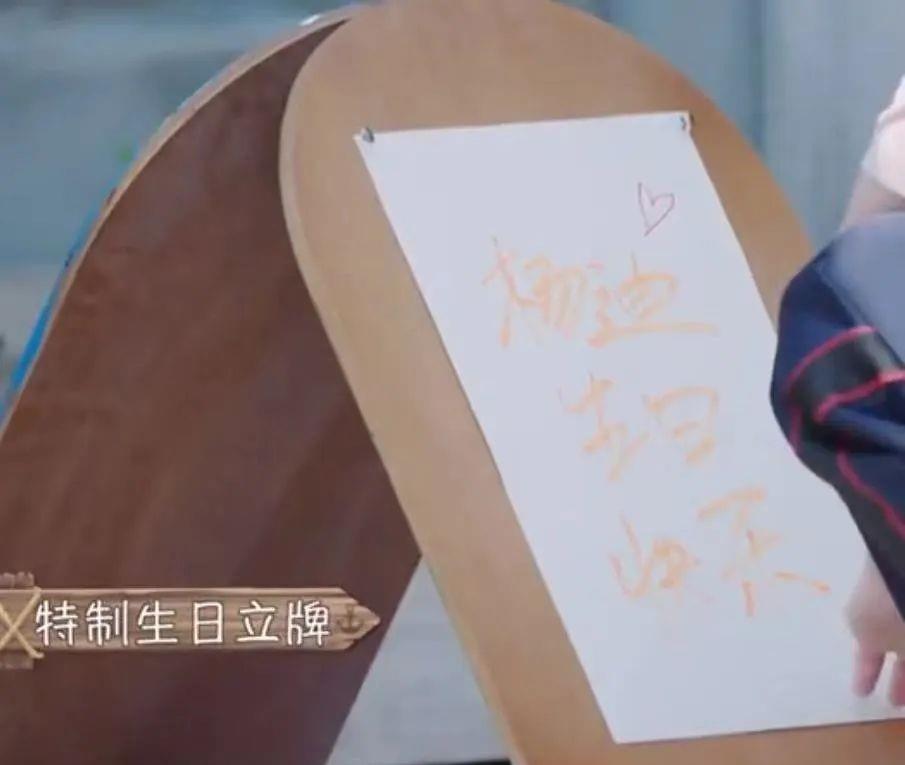 杨迪
生日
快乐
特制生日立牌